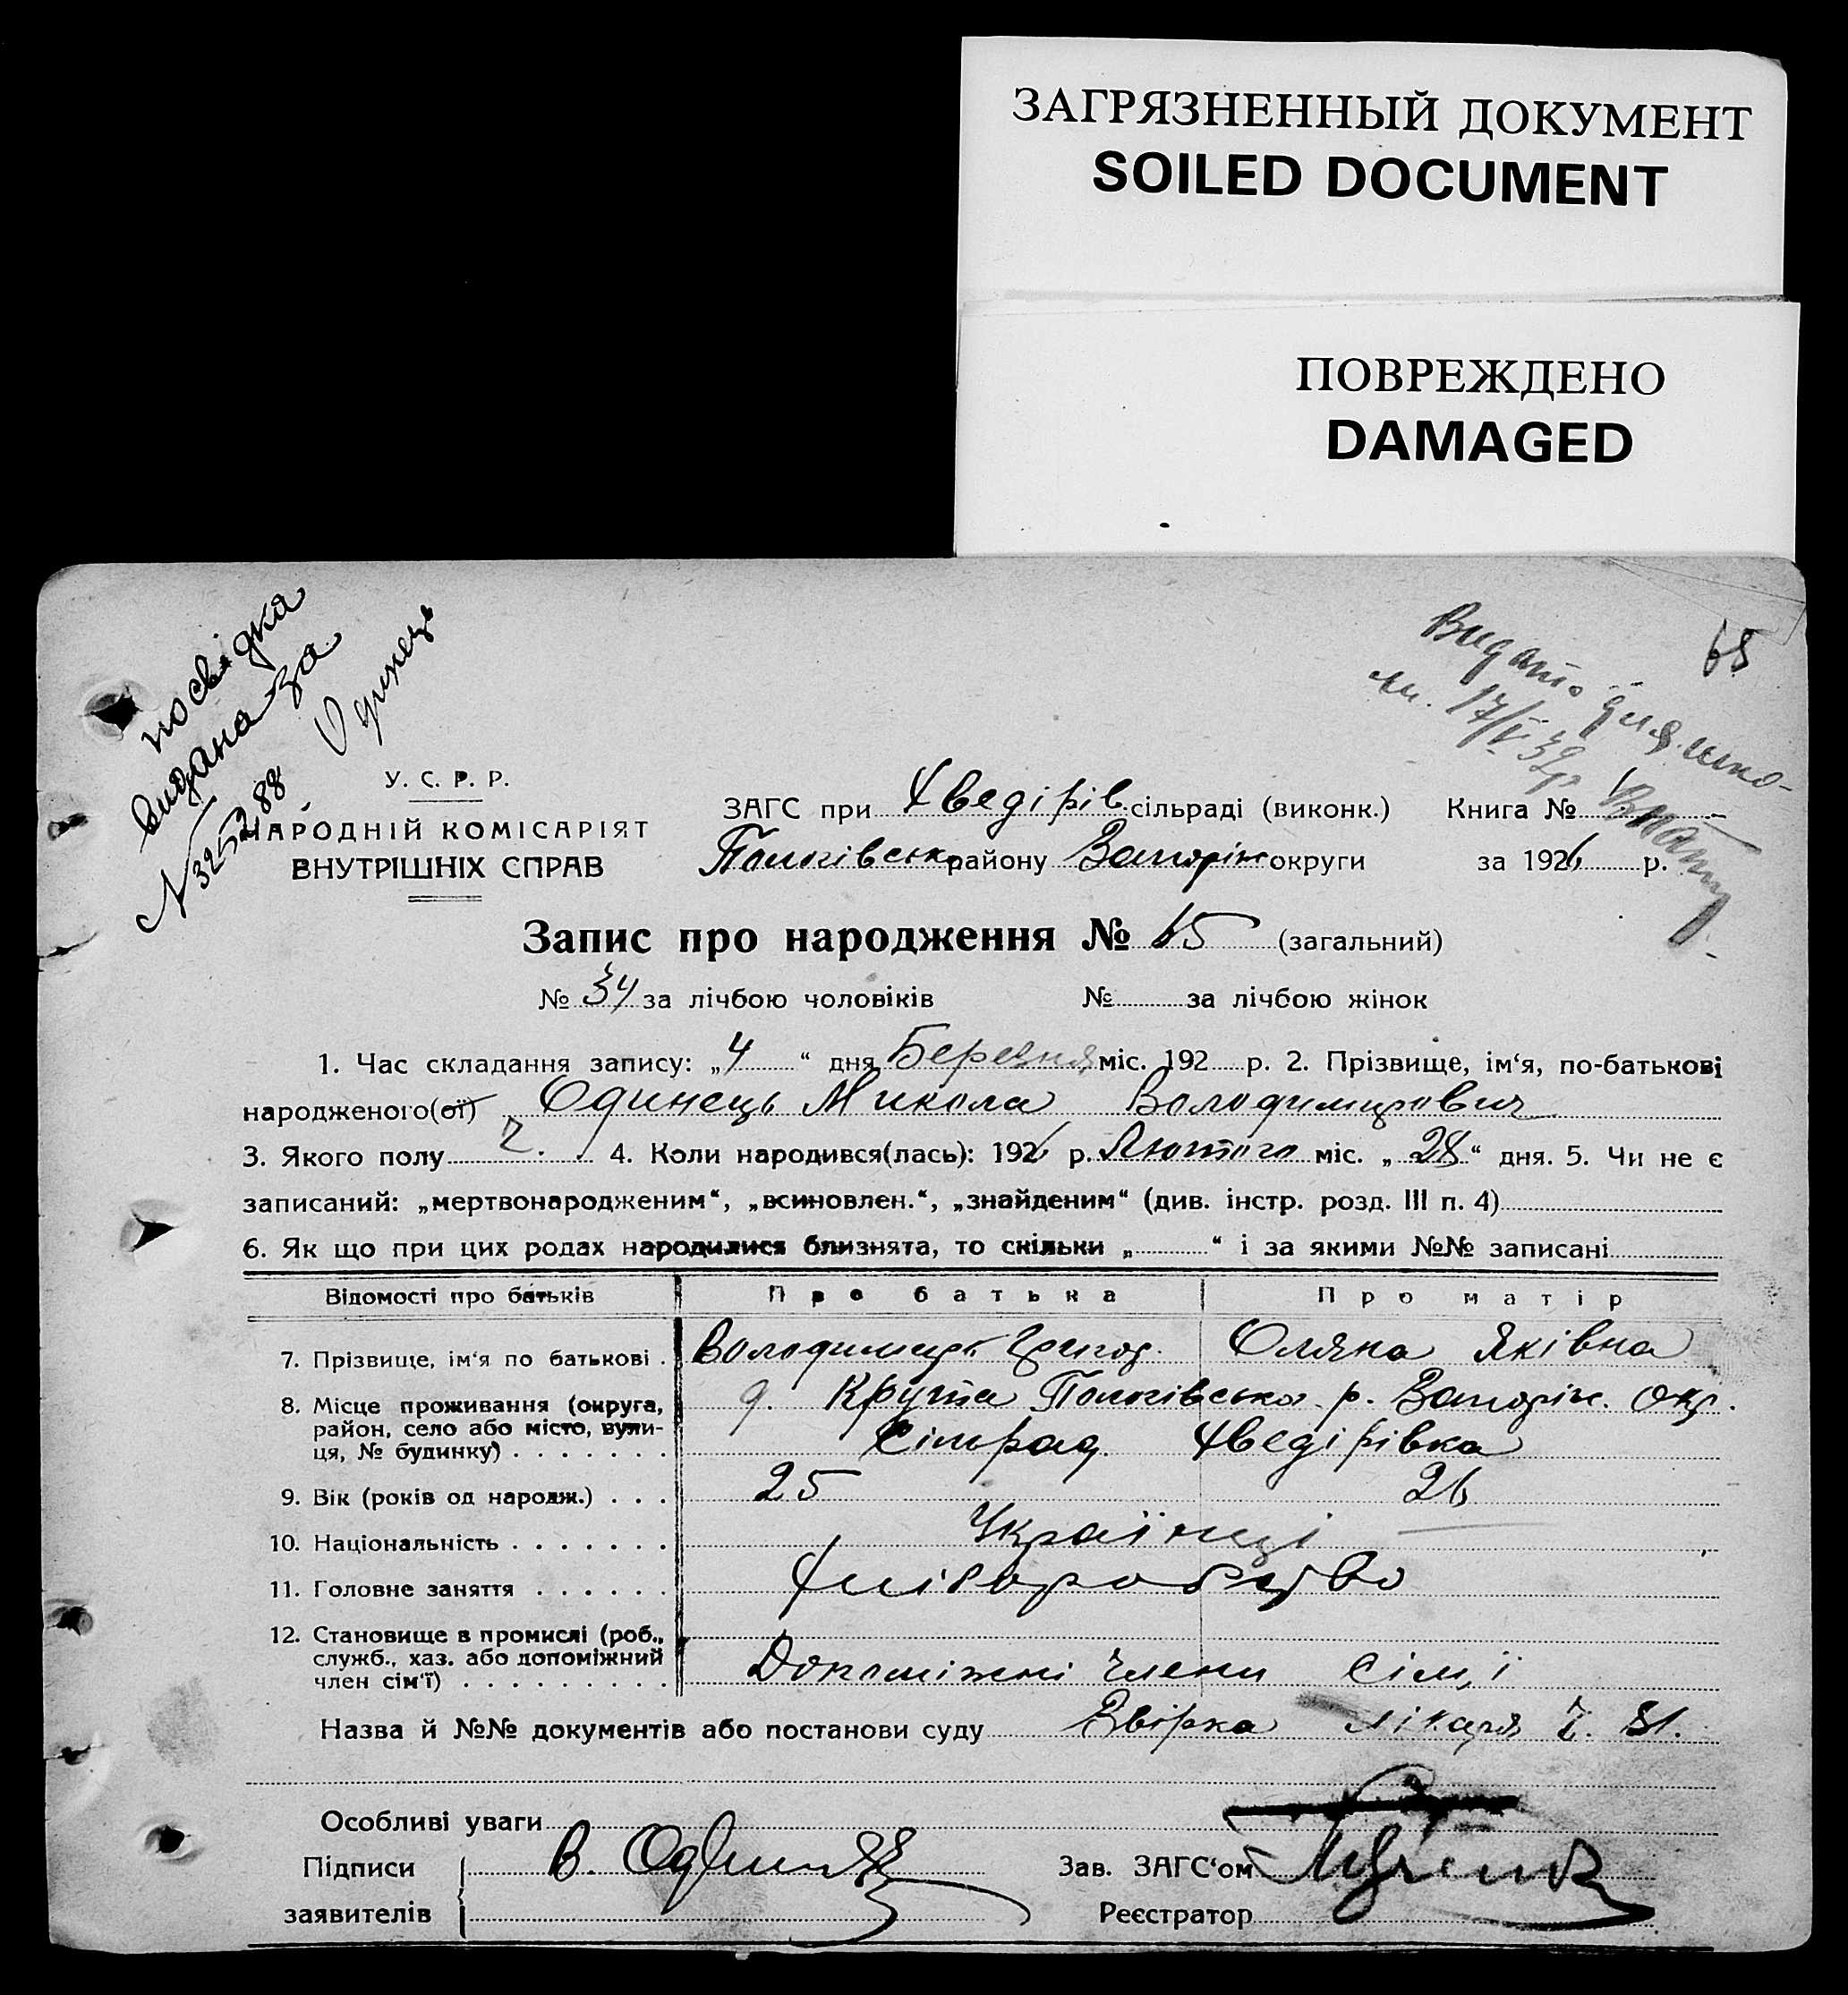 ЗАГРЯЗНЕННЫЙ ДОКУМЕНТ
SOILED DOCUMENT
ПОВРЕЖДЕНО
DAMAGED
посвідка
видана за
N 325288
Одинець
Видано для шко-
ли. 17/V 39р
65
У. С. Р. Р.
НАРОДНІЙ КОМІСАРІЯТ
ВНУТРІШНІХ СПРАВ
ЗАГС при Чведірів. сільраді (виконк.) Книга №
Пологівськ району Запоріж округи за 1926 р.
Запис про народження № 65 (загальний)
№ 34 за лічбою чоловіків № за лічбою жінок
1. Час складання запису: „4“ дня Березня міс. 192 р. 2. Прізвище, ім‘я, по-батькові
народженого(ої) Одинець Микола Володимирович
3. Якого полу ч. 4. Коли народився(лась): 1926 р. Лютого міс. „28“ дня. 5. Чи не є
записаний: „мертвонародженим“, „всиновлен.“, „знайденим“ (див. інстр. розд. III п. 4)
6. Як що при цих родах народилися близнята, то скільки „ “ і за якими №№ записані
Відомості про батьків Про батька Про матір
7. Прізвище, ім‘я по батькові . Володимир Григор. Оляна Яківна
8. Місце проживання (округа, район, село або місто, вули-ця, № будинку) . . . . . . . Крута Пологівська р. Запоріж. окр.
Сільрад. Чведірівка
9. Вік (років од народж.) . . . 25 26
10. Національність . . . . . . . Українці
11. Головне заняття . . . . . . Хліборобство
12. Становище в промислі (роб., служб., хаз. або допоміжний член сім‘ї) . . . . . . . . . Допоміжні члени сім,ї
Назва й №№ документів або постанови суду Звірка лікаря ч. 81.
Особливі уваги
Підписи В. Одинець Зав. ЗАГС‘ом
заявителів Реєстратор